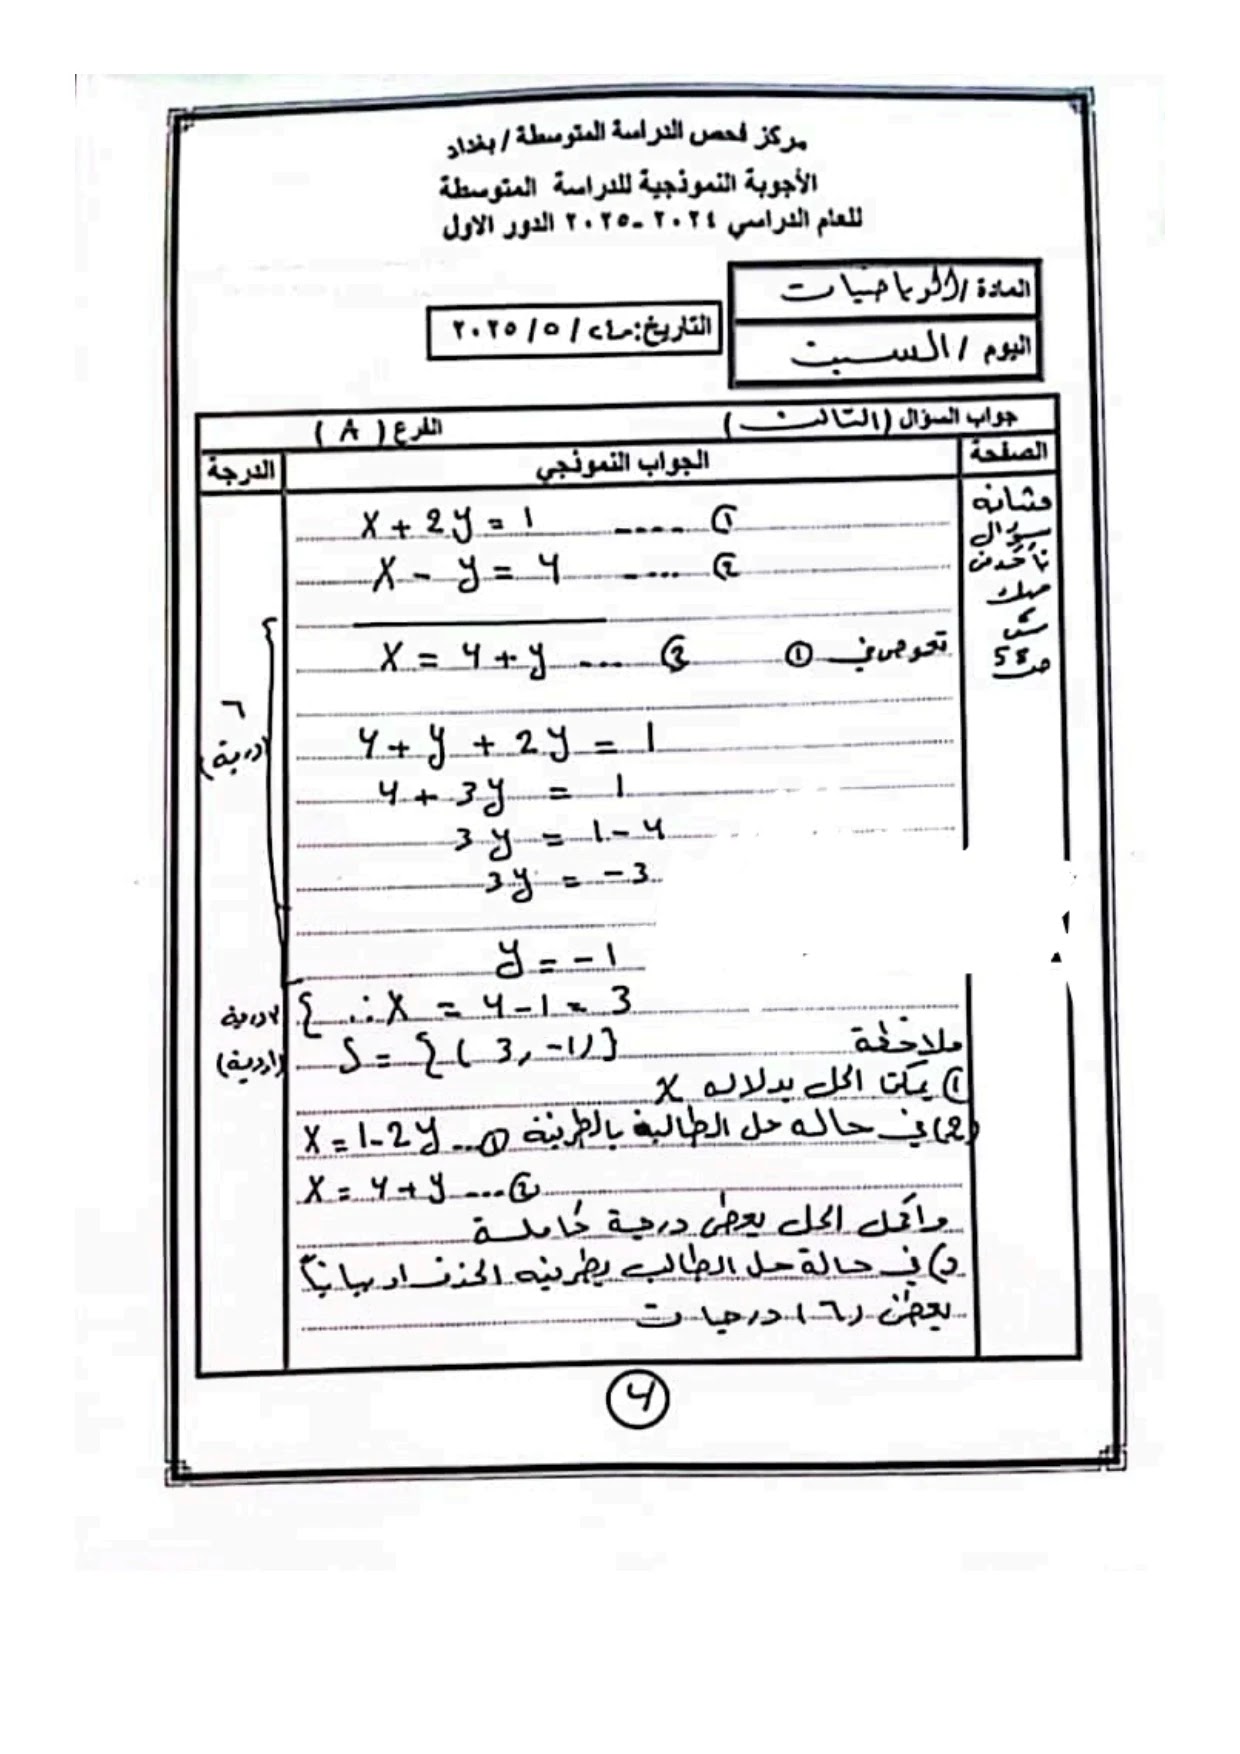 مركز فحص الدراسة المتوسطة / بغداد
الأجوبة النموذجية للدراسة المتوسطة
للعام الدراسي ٢٠٢٤ -٢٠٢٥ الدور الاول
المادة / الرياضيات
اليوم / السبت
التاريخ: ٢٤ / ٥ / ٢٠٢٥
جواب السؤال (الثالث) الفرع ( A )
الصفحة الجواب النموذجي الدرجة
x + 2y = 1 ----- ①
x - y = 4 ----- ②
x = 4 + y ---- ③ تعوض في ①
4 + y + 2y = 1
4 + 3y = 1
3y = 1 - 4
3y = -3
y = -1
∴ x = 4 - 1 = 3
S = {(3, -1)}
ملاحظة
1) يمكن الحل بدلالة x
2) في حالة حل الطالبة بالطريقة x = 1 - 2y ... ①
x = 4 + y ---- ②
واكمل الحل يعطى درجة كاملة
في حالة حل الطالب بطريقة الحذف او بيانياً
يعطى (٦) درجات
سؤال
ص 58
٦
4